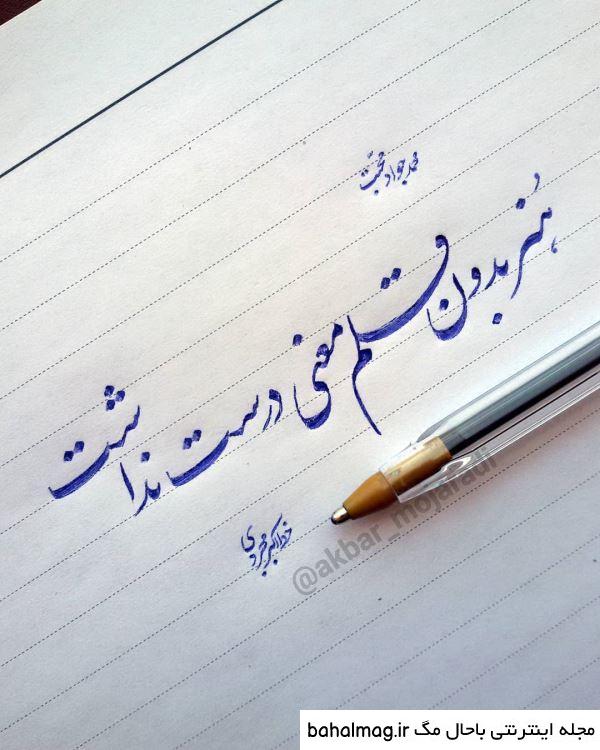 محمد جواد محبت
هنر بدون قلم معنی درست نداشت
خدااکبر مجردی
@akbar_mojaradi
مجله اینترنتی باحال مگ bahalmag.ir